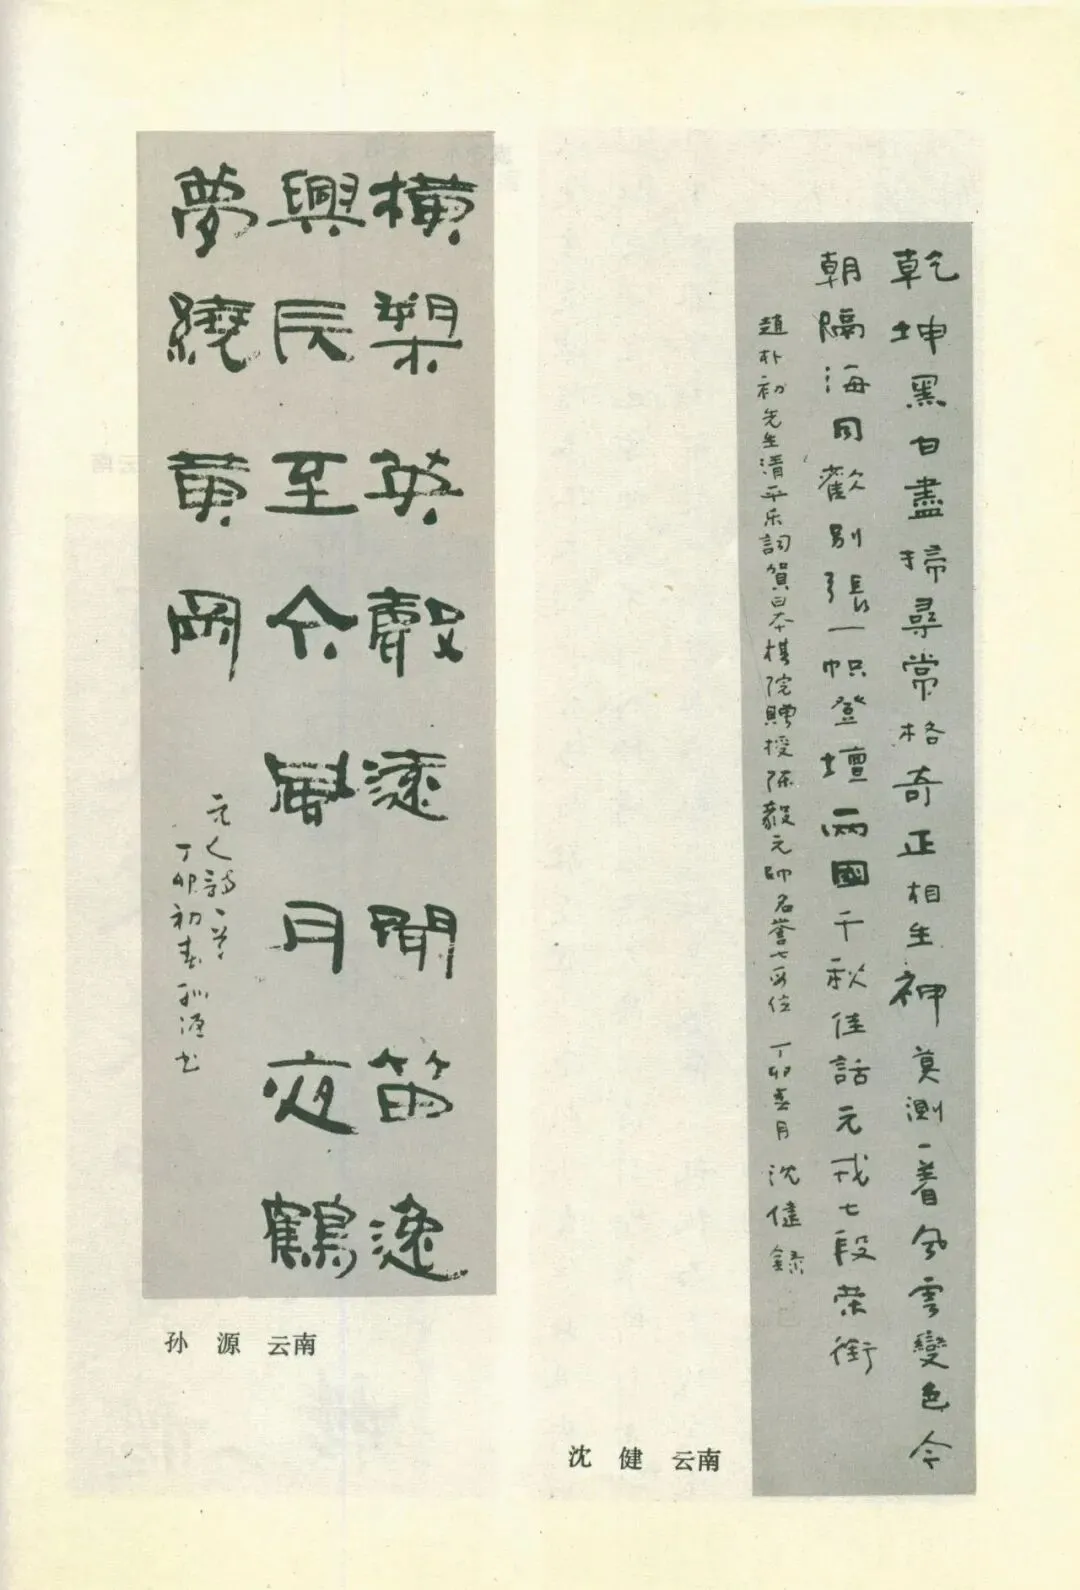 乾坤黑白盡掃尋常格奇正相生神莫測一着风雲變色今
朝隔海同歡別張一幟登壇兩國千秋佳話元戎七段荣銜
趙朴初先生清平乐詞賀日本棋院贈授陈毅元帥名誉七段位 丁卯春月 沈健録
沈 健 云南
橫槊英聲遠閒笛逸
興長至今風月夜鶴
夢繞黃岡
元人詩一首
丁卯初春孙源书
孙 源 云南